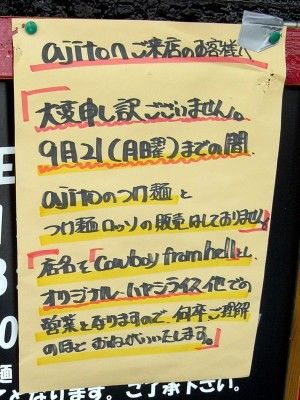 ajitoへご来店のお客様へ
大変申し訳ございません。
9月21(月曜)までの間、
ajitoのつけ麺と
つけ麺ロッソの販売はしておりません。
店名を「Cowboy from hell」とし、
オリジナルハヤシライス他での
営業となりますので、何卒ご理解
のほどおねがいいたします。
となります。ご了承下さい。